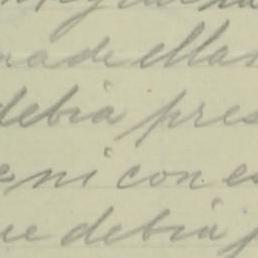 nade ellas
debia pres
e ni con es
ue debia p